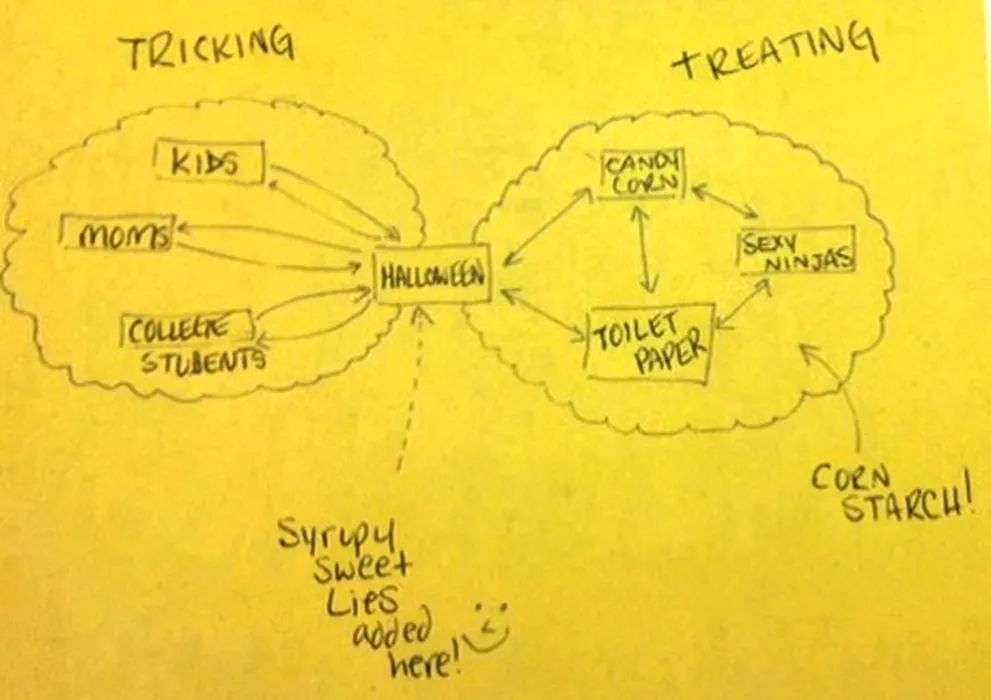 TRICKING
TREATING
KIDS
MOMS
COLLEGE
STUDENTS
HALLOWEEN
CANDY
CORN
SEXY
NINJAS
TOILET
PAPER
CORN
STARCH!
Syrupy
sweet
Lies
added
here!